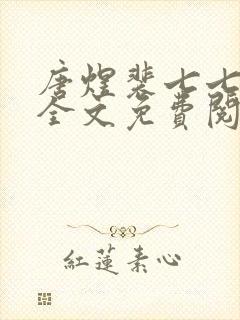 唐煜裴七七
全文免費閱
紅蓮素心